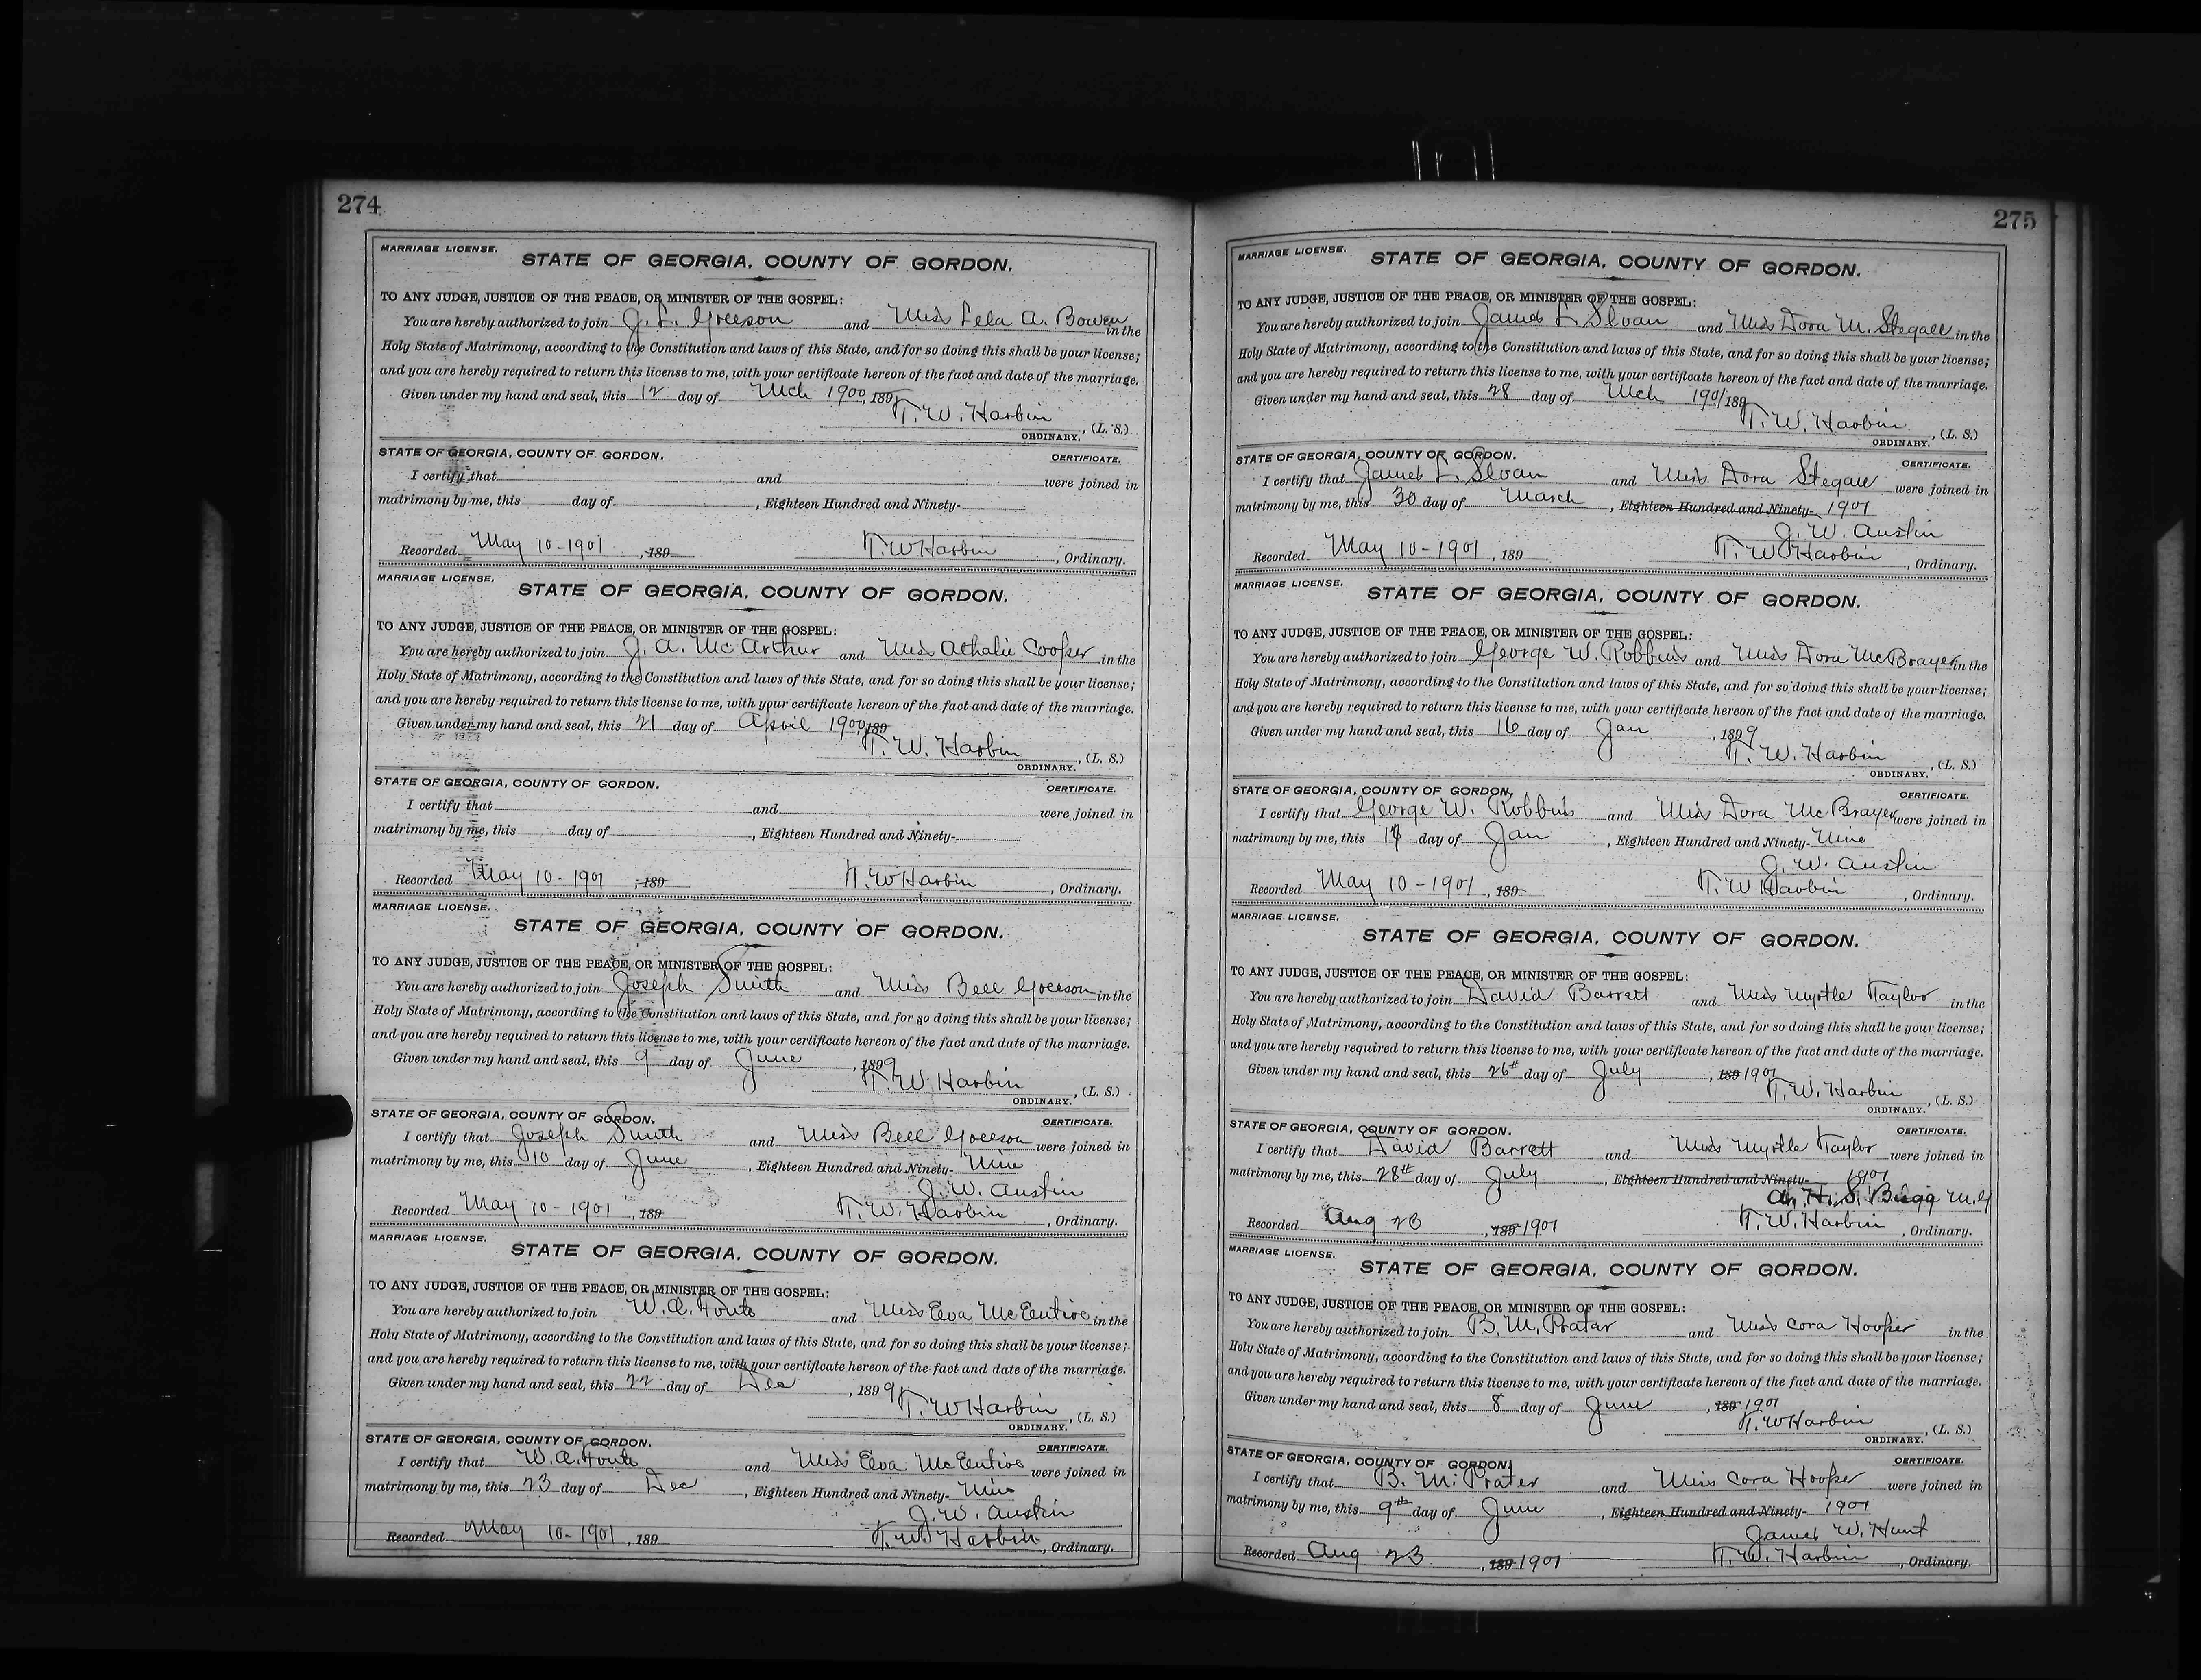 274
MARRIAGE LICENSE.
STATE OF GEORGIA, COUNTY OF GORDON.
TO ANY JUDGE, JUSTICE OF THE PEACE, OR MINISTER OF THE GOSPEL:
You are hereby authorized to join J. L. Greeson and Miss Lela A. Bowen in the
Holy State of Matrimony, according to the Constitution and laws of this State, and for so doing this shall be your license;
and you are hereby required to return this license to me, with your certificate hereon of the fact and date of the marriage.
Given under my hand and seal, this 12 day of Mch 1900, 189
T. W. Harbin
, (L. S.)
ORDINARY.
STATE OF GEORGIA, COUNTY OF GORDON. CERTIFICATE.
I certify that and were joined in
matrimony by me, this day of , Eighteen Hundred and Ninety-
Recorded May 10-1901 , 189 T. W Harbin , Ordinary.
MARRIAGE LICENSE.
STATE OF GEORGIA, COUNTY OF GORDON.
TO ANY JUDGE, JUSTICE OF THE PEACE, OR MINISTER OF THE GOSPEL:
You are hereby authorized to join J. A. McArthur and Miss Athalie Cooper in the
Holy State of Matrimony, according to the Constitution and laws of this State, and for so doing this shall be your license;
and you are hereby required to return this license to me, with your certificate hereon of the fact and date of the marriage.
Given under my hand and seal, this 21 day of April 1900, 189
T. W. Harbin
, (L. S.)
ORDINARY.
STATE OF GEORGIA, COUNTY OF GORDON. CERTIFICATE.
I certify that and were joined in
matrimony by me, this day of , Eighteen Hundred and Ninety-
Recorded May 10-1901 , 189 T. W Harbin , Ordinary.
MARRIAGE LICENSE.
STATE OF GEORGIA, COUNTY OF GORDON.
TO ANY JUDGE, JUSTICE OF THE PEACE, OR MINISTER OF THE GOSPEL:
You are hereby authorized to join Joseph Smith and Miss Bell Greeson in the
Holy State of Matrimony, according to the Constitution and laws of this State, and for so doing this shall be your license;
and you are hereby required to return this license to me, with your certificate hereon of the fact and date of the marriage.
Given under my hand and seal, this 9 day of June , 1899
T. W. Harbin
, (L. S.)
ORDINARY.
STATE OF GEORGIA, COUNTY OF GORDON. CERTIFICATE.
I certify that Joseph Smith and Miss Bell Greeson were joined in
matrimony by me, this 10 day of June , Eighteen Hundred and Ninety- Nine
J. W. Austin
Recorded May 10-1901 , 189 T. W. Harbin , Ordinary.
MARRIAGE LICENSE.
STATE OF GEORGIA, COUNTY OF GORDON.
TO ANY JUDGE, JUSTICE OF THE PEACE, OR MINISTER OF THE GOSPEL:
You are hereby authorized to join W. A. and Miss Eva McEntire in the
Holy State of Matrimony, according to the Constitution and laws of this State, and for so doing this shall be your license;
and you are hereby required to return this license to me, with your certificate hereon of the fact and date of the marriage.
Given under my hand and seal, this 22 day of Dec , 1899
T. W Harbin
, (L. S.)
ORDINARY.
STATE OF GEORGIA, COUNTY OF GORDON. CERTIFICATE.
I certify that W. A. and Miss Eva McEntire were joined in
matrimony by me, this 23 day of Dec , Eighteen Hundred and Ninety- Nine
J. W. Austin
Recorded May 10-1901 , 189 T. W Harbin , Ordinary.
275
MARRIAGE LICENSE.
STATE OF GEORGIA, COUNTY OF GORDON.
TO ANY JUDGE, JUSTICE OF THE PEACE, OR MINISTER OF THE GOSPEL:
You are hereby authorized to join James L. Sloan and Miss Dora M. Stegall in the
Holy State of Matrimony, according to the Constitution and laws of this State, and for so doing this shall be your license;
and you are hereby required to return this license to me, with your certificate hereon of the fact and date of the marriage.
Given under my hand and seal, this 28 day of Mch 1901 189
T. W. Harbin
, (L. S.)
ORDINARY.
STATE OF GEORGIA, COUNTY OF GORDON. CERTIFICATE.
I certify that James L. Sloan and Miss Dora Stegall were joined in
matrimony by me, this 30 day of March , Eighteen Hundred and Ninety- 1901
J. W. Austin
Recorded May 10-1901 , 189 T. W Harbin , Ordinary.
MARRIAGE LICENSE.
STATE OF GEORGIA, COUNTY OF GORDON.
TO ANY JUDGE, JUSTICE OF THE PEACE, OR MINISTER OF THE GOSPEL:
You are hereby authorized to join George W. Robbins and Miss Dora McBrayer in the
Holy State of Matrimony, according to the Constitution and laws of this State, and for so doing this shall be your license;
and you are hereby required to return this license to me, with your certificate hereon of the fact and date of the marriage.
Given under my hand and seal, this 16 day of Jan , 1899
T. W. Harbin
, (L. S.)
ORDINARY.
STATE OF GEORGIA, COUNTY OF GORDON. CERTIFICATE.
I certify that George W. Robbins and Miss Dora McBrayer were joined in
matrimony by me, this day of Jan , Eighteen Hundred and Ninety- Nine
J. W. Austin
Recorded May 10-1901 , 189 T. W Harbin , Ordinary.
MARRIAGE LICENSE.
STATE OF GEORGIA, COUNTY OF GORDON.
TO ANY JUDGE, JUSTICE OF THE PEACE, OR MINISTER OF THE GOSPEL:
You are hereby authorized to join David Barrett and Miss Myrtle Taylor in the
Holy State of Matrimony, according to the Constitution and laws of this State, and for so doing this shall be your license;
and you are hereby required to return this license to me, with your certificate hereon of the fact and date of the marriage.
Given under my hand and seal, this 26th day of July , 189 1901
T. W. Harbin
, (L. S.)
ORDINARY.
STATE OF GEORGIA, COUNTY OF GORDON. CERTIFICATE.
I certify that David Barrett and Miss Myrtle Taylor were joined in
matrimony by me, this 28th day of July , Eighteen Hundred and Ninety- 1901
A. H. S. Bugg M.G
Recorded Aug 23 , 189 1901 T. W. Harbin , Ordinary.
MARRIAGE LICENSE.
STATE OF GEORGIA, COUNTY OF GORDON.
TO ANY JUDGE, JUSTICE OF THE PEACE, OR MINISTER OF THE GOSPEL:
You are hereby authorized to join B. M. Prater and Miss Cora Hooper in the
Holy State of Matrimony, according to the Constitution and laws of this State, and for so doing this shall be your license;
and you are hereby required to return this license to me, with your certificate hereon of the fact and date of the marriage.
Given under my hand and seal, this 8 day of June , 189 1901
T. W Harbin
, (L. S.)
ORDINARY.
STATE OF GEORGIA, COUNTY OF GORDON. CERTIFICATE.
I certify that B. M. Prater and Miss Cora Hooper were joined in
matrimony by me, this 9th day of June , Eighteen Hundred and Ninety- 1901
James W. Hunt
Recorded Aug 23 , 189 1901 T. W. Harbin , Ordinary.